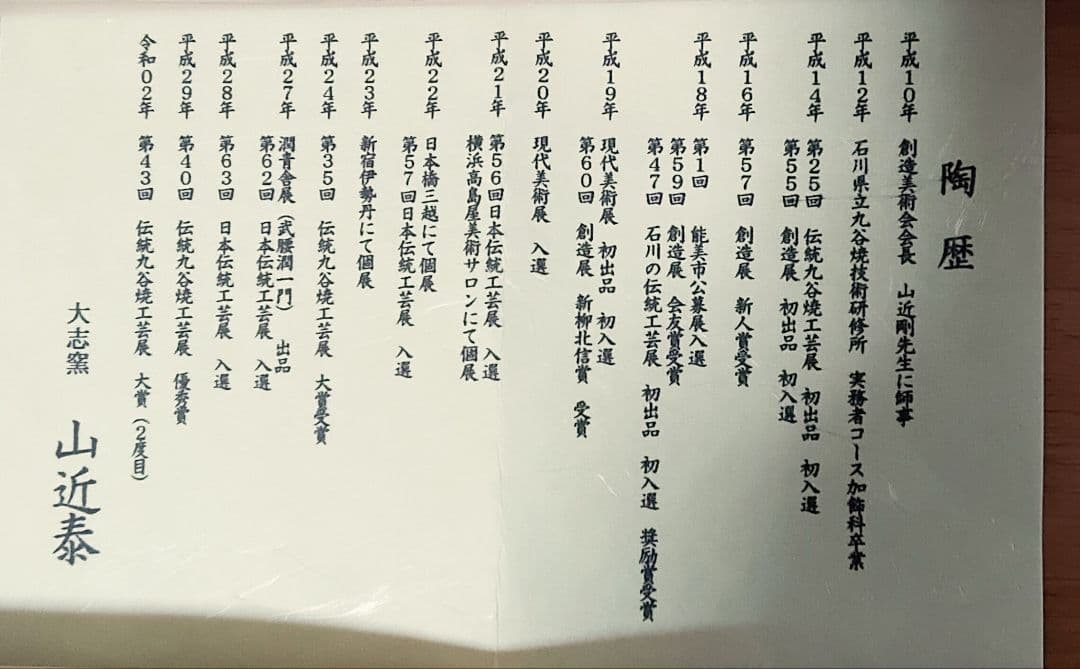 陶歴
平成10年 創造美術会会長 山近剛先生に師事
平成12年 石川県立九谷焼技術研修所 実務者コース加飾科卒業
平成14年 第25回 伝統九谷焼工芸展 初出品 初入選
第55回 創造展 初出品 初入選
平成16年 第57回 創造展 新人賞受賞
平成18年 第1回 能美市公募展入選
第59回 創造展 会友賞受賞
第47回 石川の伝統工芸展 初出品 初入選 奨励賞受賞
平成19年 現代美術展 初出品 初入選
第60回 創造展 新柳北信賞 受賞
平成20年 現代美術展 入選
平成21年 第56回日本伝統工芸展 入選
横浜高島屋美術サロンにて個展
平成22年 日本橋三越にて個展
第57回日本伝統工芸展 入選
平成23年 新宿伊勢丹にて個展
平成24年 第35回 伝統九谷焼工芸展 大賞受賞
平成27年 潤青舎展(武腰潤一門) 出品
第62回 日本伝統工芸展 入選
平成28年 第63回 日本伝統工芸展 入選
平成29年 第40回 伝統九谷焼工芸展 優秀賞
令和02年 第43回 伝統九谷焼工芸展 大賞(2度目)
大志窯 山近泰